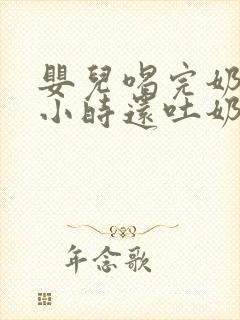 嬰兒喝完奶
小時還吐奶
年念歌